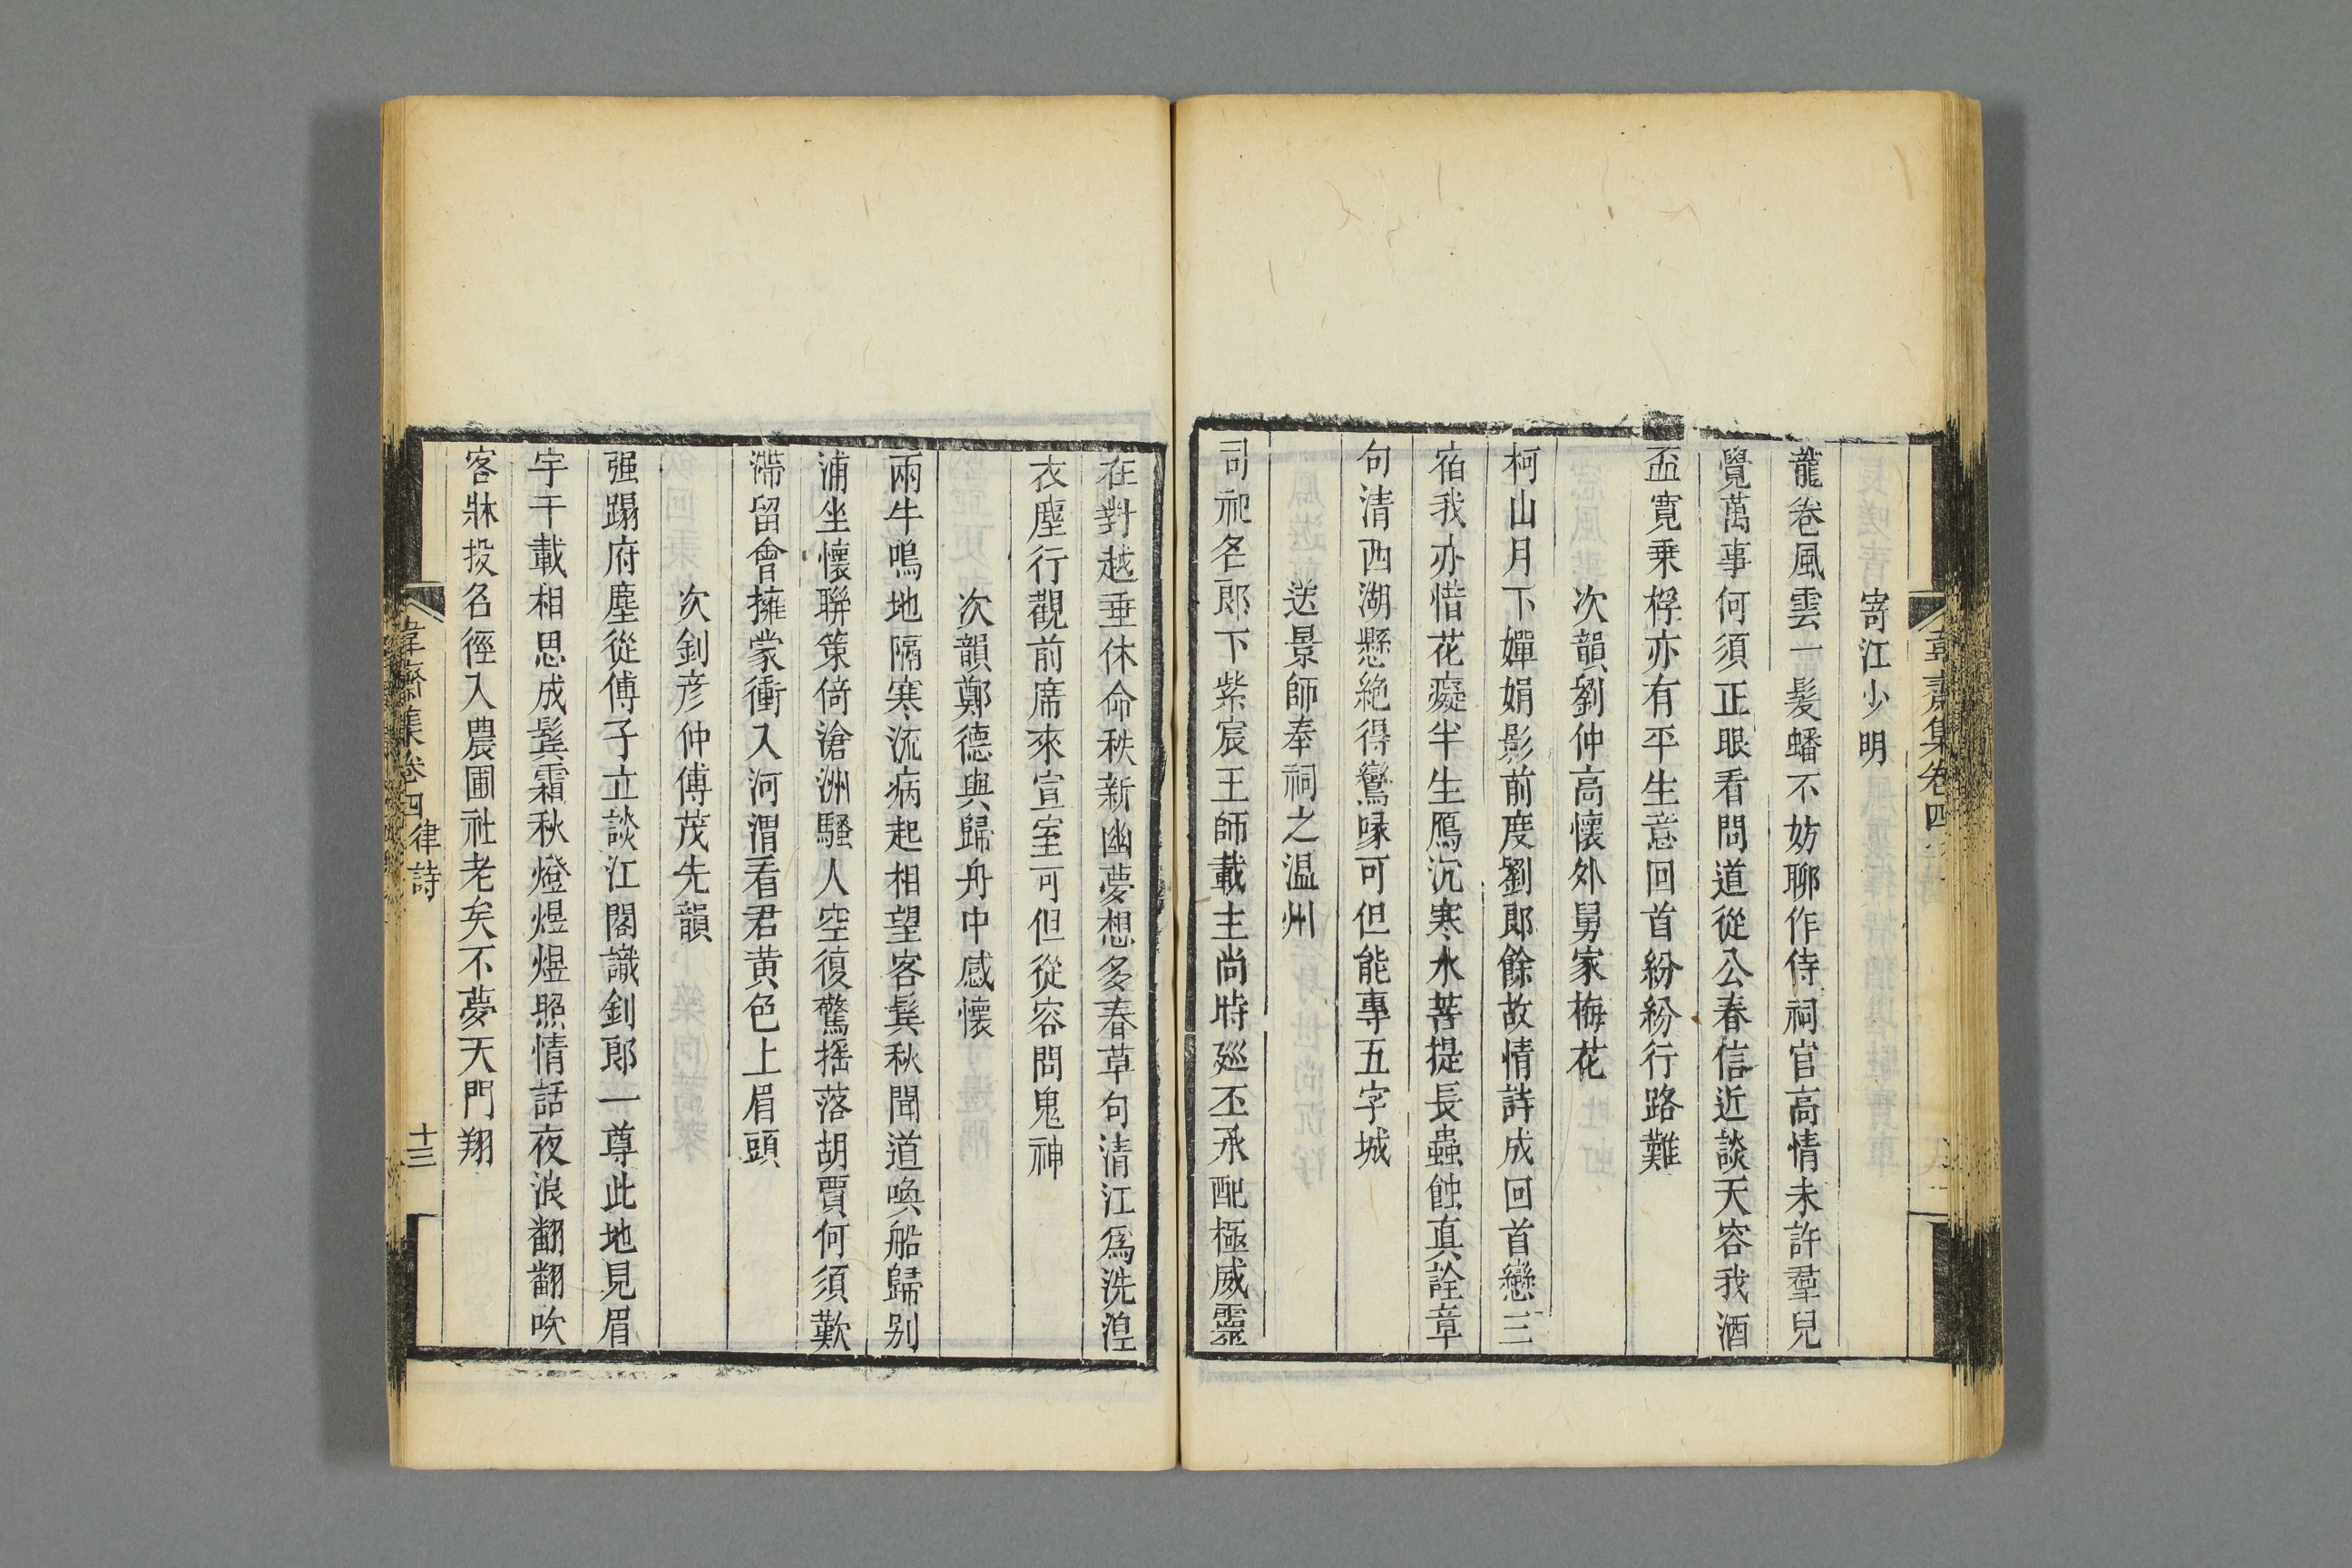 韋齋集卷四
寄江少明
蘢卷風雲一髮蟠不妨聊作侍祠官高情未許羣兒
覺萬事何須正眼看問道從公春信近談天容我酒
盃寛乗桴亦有平生意回首紛紛行路難
次韻劉仲高懷外舅家梅花
柯山月下嬋娟影前度劉郎餘故情詩成回首戀三
宿我亦惜花癡半生鴈沉寒水菩提長蟲蝕真詮章
句清西湖懸絶得鸞喙可但能專五字城
送景師奉祠之温州
司祀名郎下紫宸王師載主尚時廵丕承配極威靈
在對越垂休命秩新幽夢想多春草句清江爲洗湟
衣塵行觀前席來宣室可但從容問鬼神
次韻鄭德與歸舟中感懷
兩牛鳴地隔寒流病起相望客鬂秋聞道喚船歸别
浦坐懷聨策倚滄洲騷人空復驚揺落胡賈何須歎
滯留會擁蒙衝入河渭看君黄色上眉頭
次釗彦仲傅茂先韻
强蹋府塵從傅子立談江閣識釗郎一尊此地見眉
宇千載相思成鬂霜秋燈煜煜照情話夜浪翻翻吹
客牀投名徑入農圃社老矣不夢天門翔
韋齋集卷四 律詩 十三